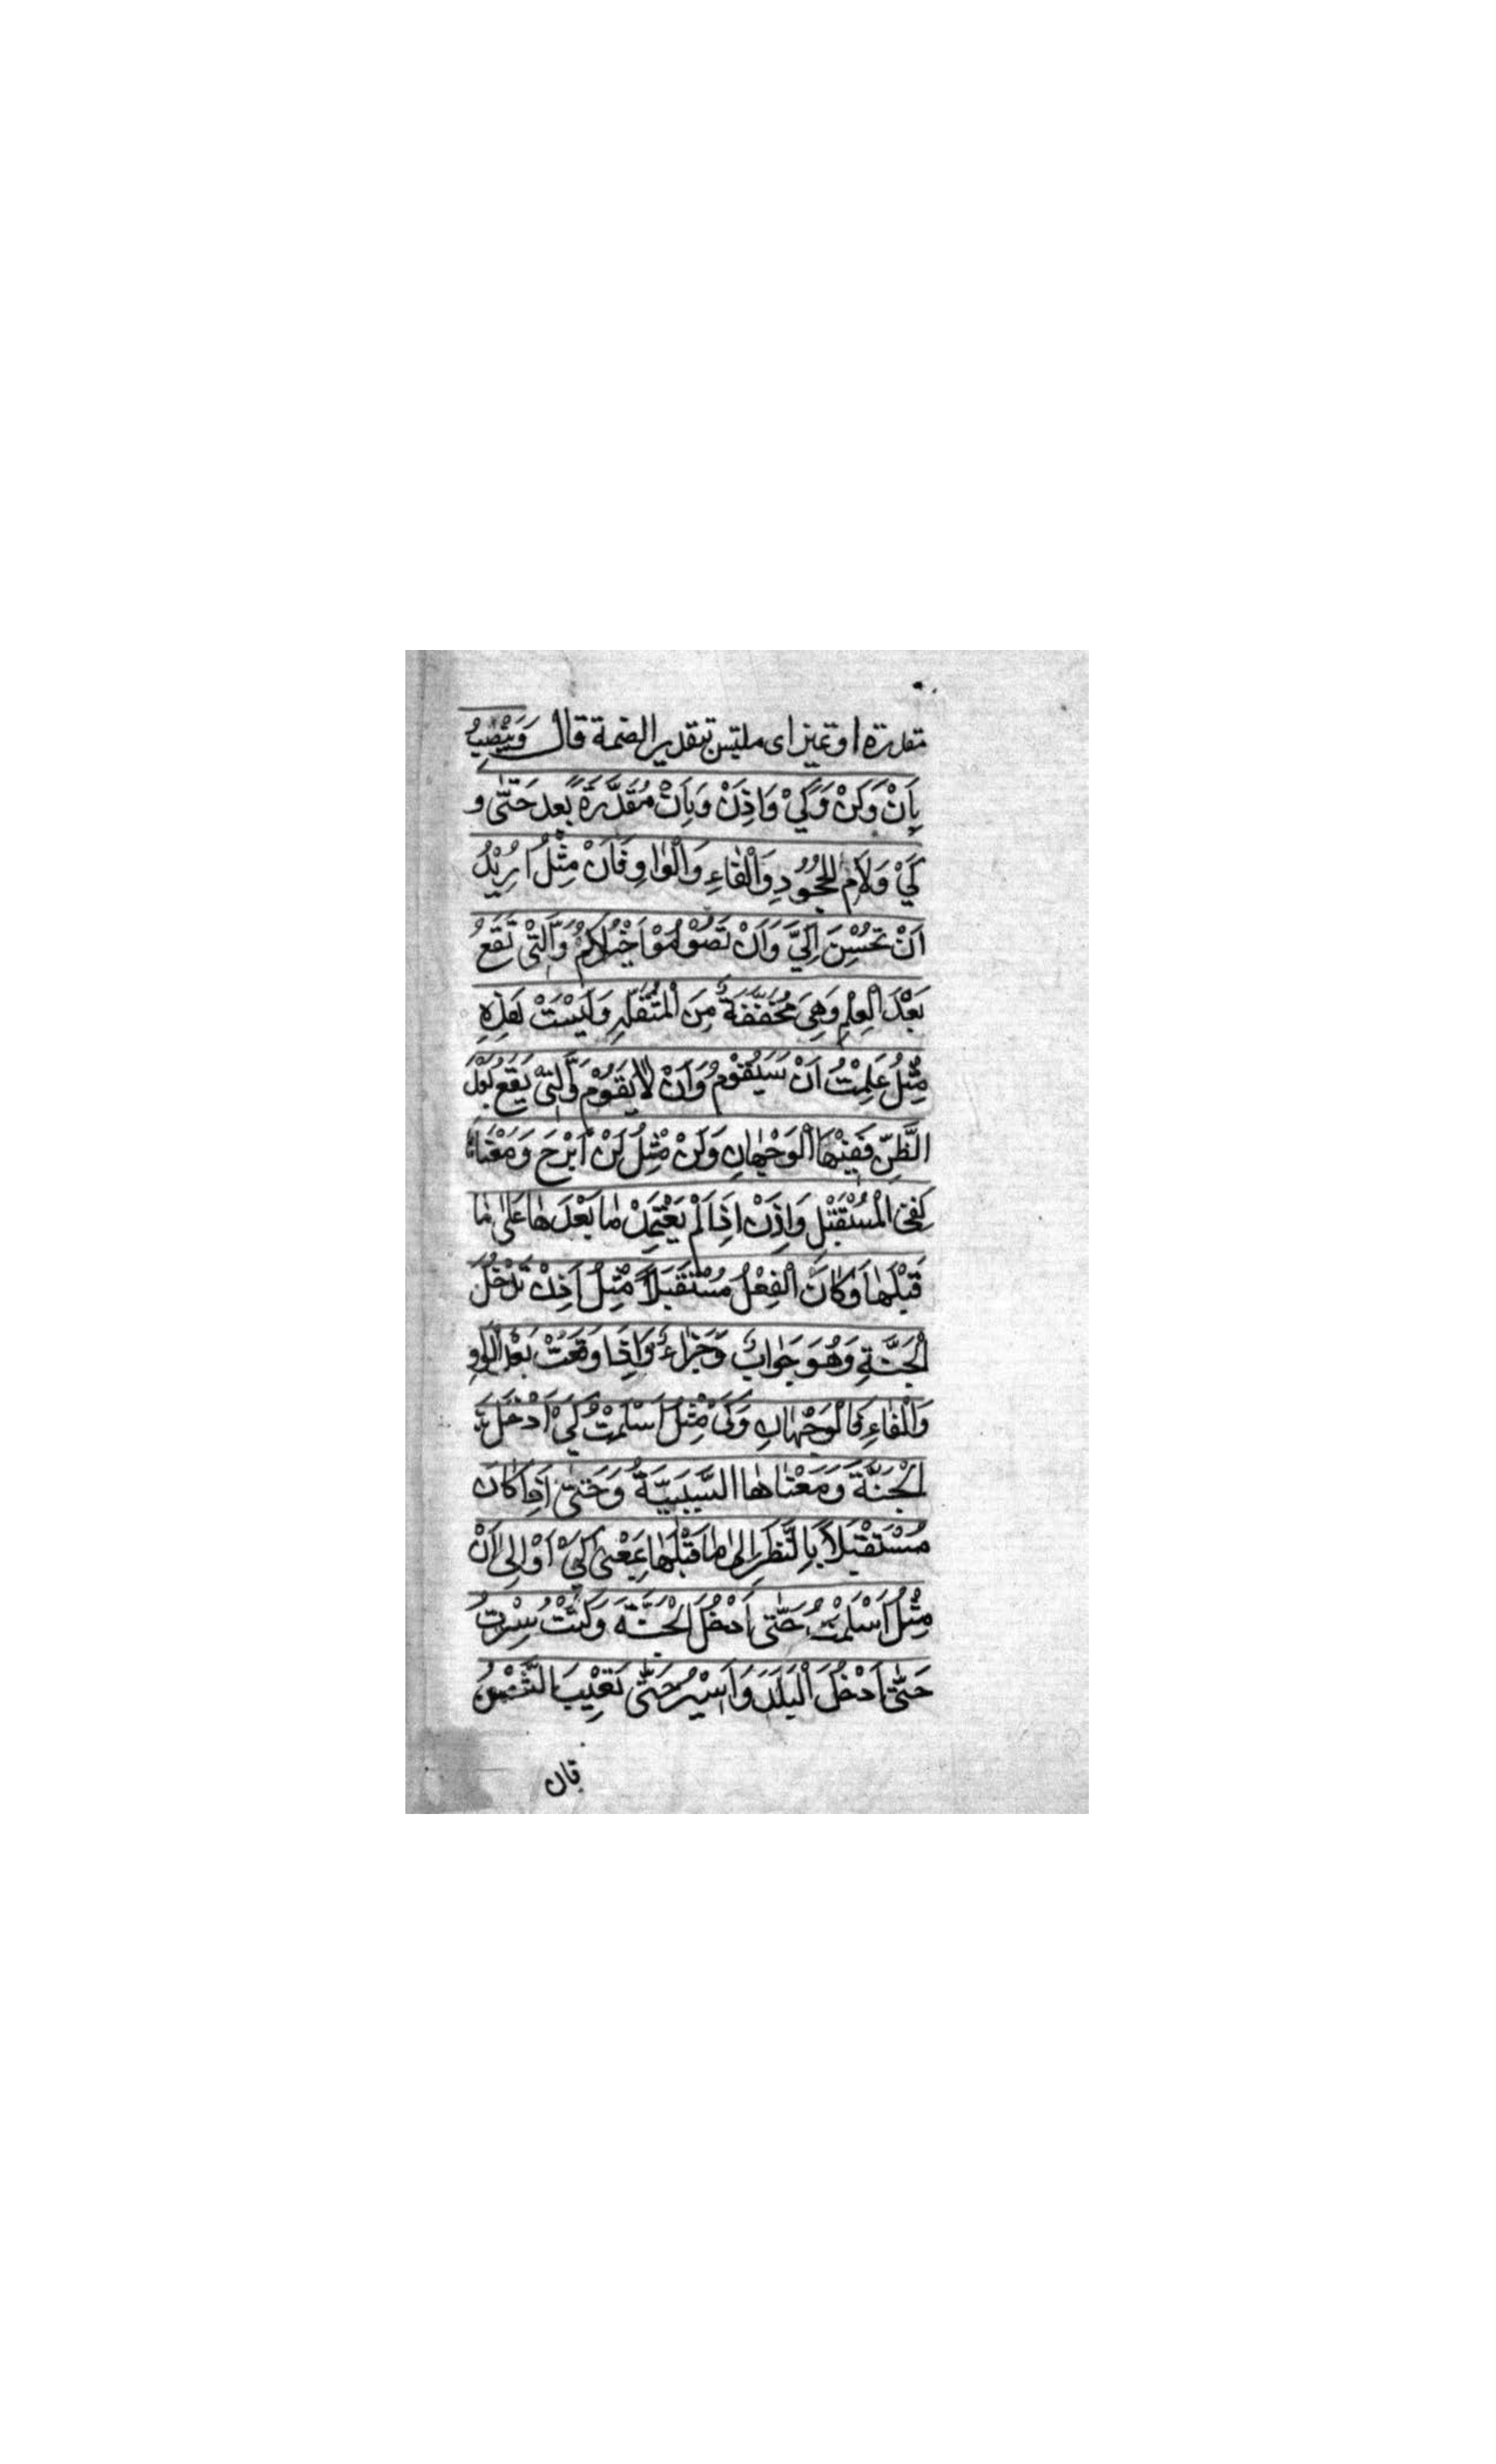 مقدرة او تميز اى ملتبس بتقدير الضمة قال وَيَنْصِبُ
بِاَنْ وَلَنْ وَكَيْ وَاِذَنْ وَبِاَنْ مُقَدَّرَةً بَعد حَتّٰى و
كَيْ وَلَامِ الجُحُوْدِ وَالْفَاءِ وَالْوَاوِ فَاَنْ مِثْلُ اُرِيْدُ
اَنْ تُحْسِنَ اِلَيَّ وَاَنْ تَصُوْمُوْا خَيْرٌ لَكُمْ وَالَّتِيْ تَقَعُ
بَعْدَ الْعِلْمِ وَهِيَ مُخَفَّفَةٌ مِنَ الْمُثَقَّلَةِ وَلَيْسَتْ هٰذِهِ
مِثْلُ عَلِمْتُ اَنْ سَيَقُوْمُ وَاَنْ لَا يَقُوْمُ وَالَّتِيْ يَقَعُ بَعْدَ
الظَّنِّ فَفِيْهَا الْوَجْهَانِ وَلَنْ مِثْلُ لَنْ اَبْرَحَ وَمَعْنَاهَا
نَفْيُ الْمُسْتَقْبَلِ وَاِذَنْ اِذَا لَمْ يَعْتَمِدْ مَا بَعْدَهَا عَلٰى مَا
قَبْلَهَا وَكَانَ الْفِعْلُ مُسْتَقْبَلًا مِثْلُ اِذَنْ تَدْخُلَ
الْجَنَّةِ وَهُوَ جَوَابٌ وَجَزَاءٌ وَاِذَا وَقَعَتْ بَعْدَ الْوَاوِ
وَالْفَاءِ فَالْوَجْهَانِ وَكَيْ مِثْلُ اَسْلَمْتُ كَيْ اَدْخُلَ
الْجَنَّةَ وَمَعْنَاهَا السَّبَبِيَّةُ وَحَتّٰى اِذَا كَانَ
مُسْتَقْبَلًا بِالنَّظَرِ اِلٰى مَا قَبْلَهَا بِمَعْنٰى كَيْ اَوْ اِلٰى اَنْ
مِثْلُ اَسْلَمْتُ حَتّٰى اَدْخُلَ الْجَنَّةَ وَكُنْتُ سِرْتُ
حَتّٰى اَدْخُلَ الْبَلَدَ وَاَسِيْرُ حَتّٰى تَغِيْبَ الشَّمْسُ
قال